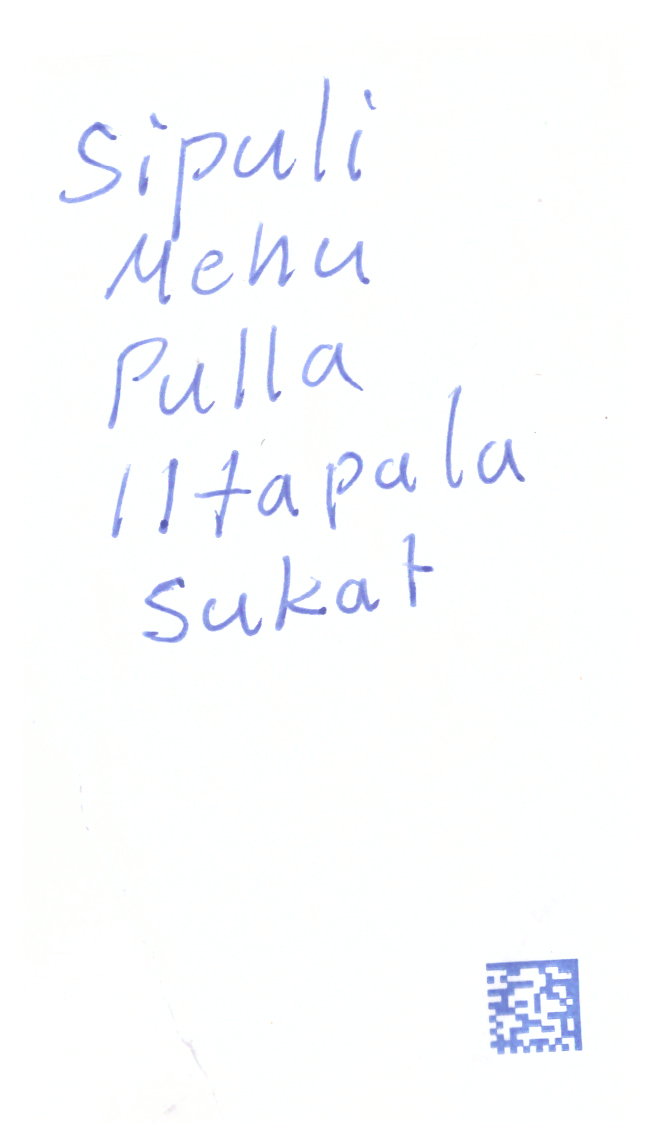 Sipuli
Mehu
Pulla
Iltapala
Sukat